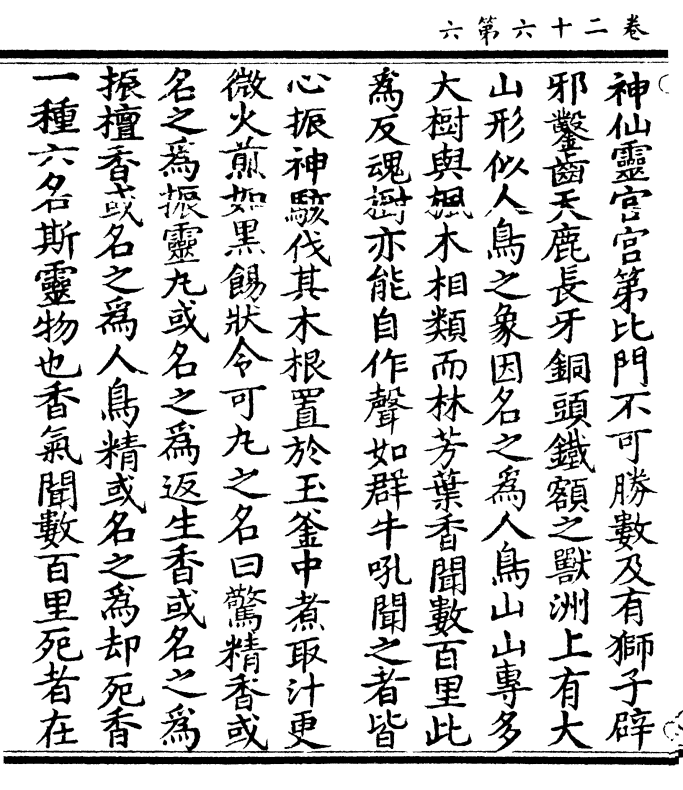 卷二十六第六
神仙靈宮宮第比門不可勝數及有獅子辟
邪鑿齒天鹿長牙銅頭鐵額之獸洲上有大
山形似人鳥之象因名之爲人鳥山山專多
大樹與楓木相類而林芳葉香聞數百里此
爲反魂樹亦能自作聲如群牛吼聞之者皆
心振神駭伐其木根置於玉釜中煮取汁更
微火煎如黑餳狀令可丸之名曰驚精香或
名之爲振靈丸或名之爲返生香或名之爲
振檀香或名之爲人鳥精或名之爲却死香
一種六名斯靈物也香氣聞數百里死者在